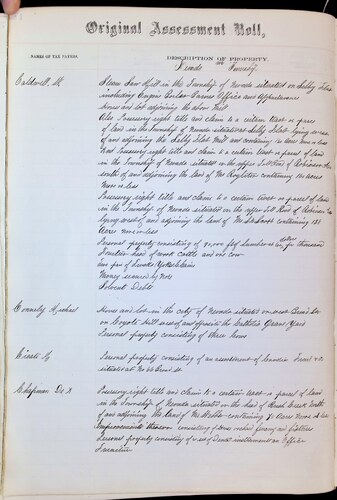 Original Assessment Roll,
NAMES OF TAX PAYERS.
DESCRIPTION OF PROPERTY.
Nevada County.
Caldwell, 
Steam Saw Mill in the Township of Nevada situated on Selby Flat
including Engine Boiler Frame Office and appurtenances
House and lot adjoining the above Mill
Also Possessory right title and claim to a certain tract or parcel
of land in the Township of Nevada situated at Selby Flat lying west
of and adjoining the Selby Flat Mill and containing
and Possessory right title and claim to a certain tract or parcel of land
in the Township of Nevada situated on the upper Toll Road of
south of and adjoining the land of Mr containing 160 acres
More or less
Possessory right title and claim to a certain tract or parcel of land
in the Township of Nevada situated on the upper Toll Road of
lying west of and adjoining the land of containing 121
Acres more or less
Personal property consisting of feet Lumber at per thousand
Fourteen head of work cattle and one cow
pair of Trucks Yokes & Chains
Money secured by Note
Solvent Debts
Connelly Michael
House and lot in the city of Nevada situated on west Broad St
on Coyote Hill west of and opposite the Catholic Grave Yard
Personal property consisting of three Cows
Personal property consisting of an assortment of &c
situated at No 66 Broad St
Chapman Dr A
Possessory right title and claim to a certain tract or parcel of land
in the Township of Nevada situated on the head of Brush Creek North
of and adjoining the land of Mr containing 70 acres More or less
Improvements thereon consisting of
Personal property consisting of a set of Dental instruments and Office
Furniture